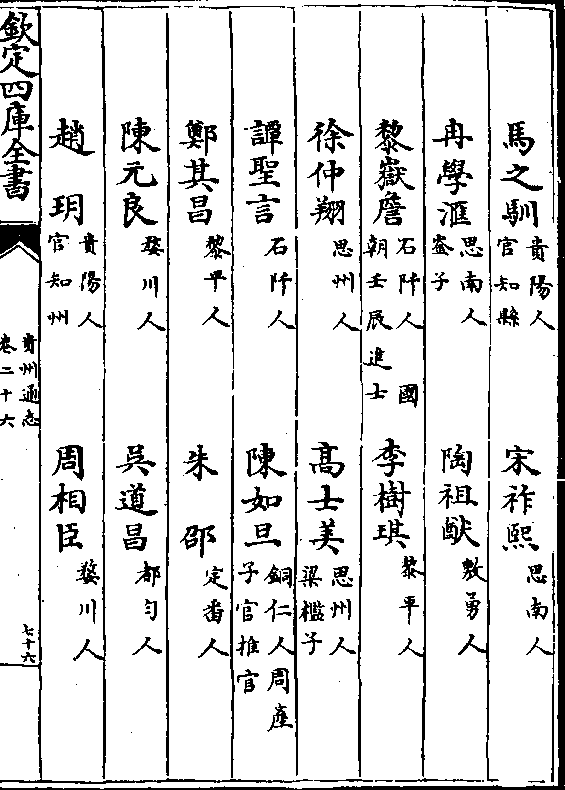 馬之馴 貴陽人官知縣 宋祚熙 思南人
冉學滙 思南人崟子 陶祖猷 敷勇人
黎嶽詹 石阡人國朝壬辰進士 李樹琪 黎平人
徐仲翔 思州人 高士美 思州人梁楹子
譚聖言 石阡人 陳如旦 銅仁人周産子官推官
鄭其昌 黎平人 朱邵 定番人
陳元良 婺川人 吳道昌 都勻人
趙玥 貴陽人官知州 周相臣 婺川人
欽定四庫全書 貴州通志卷二十六 七十六